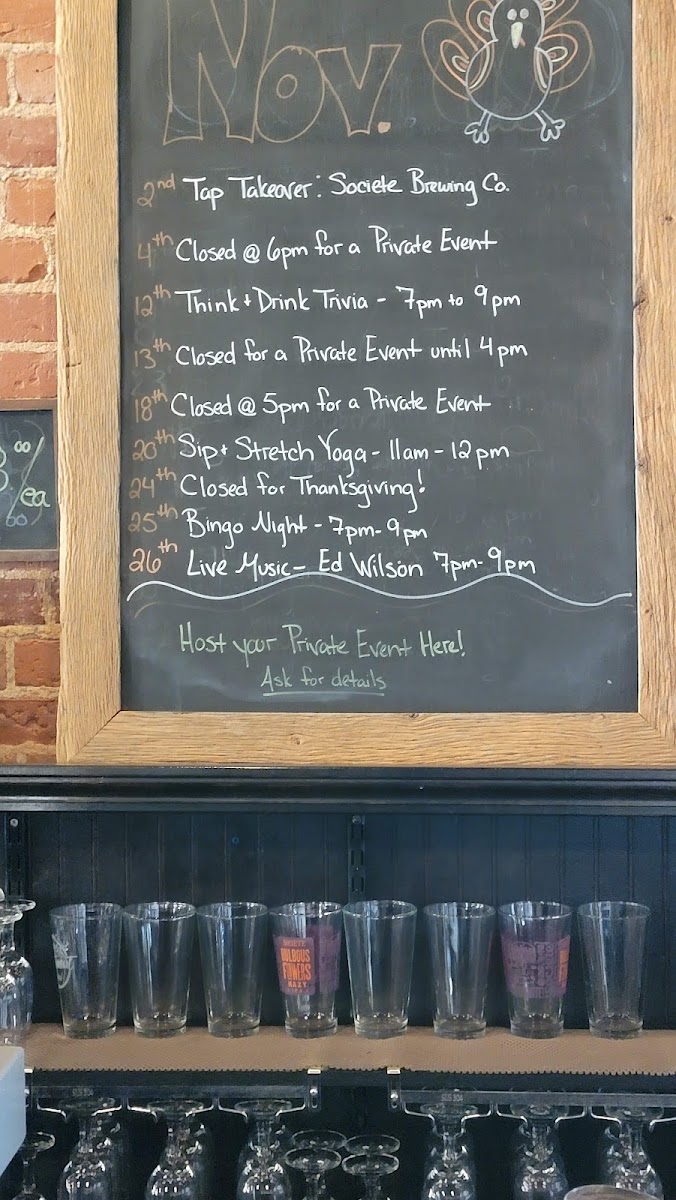 Nov.
2nd Tap Takeover: Societe Brewing Co.
4th Closed @ 6pm for a Private Event
12th Think + Drink Trivia - 7pm to 9pm
13th Closed for a Private Event until 4pm
18th Closed @ 5pm for a Private Event
20th Sip + Stretch Yoga - 11am - 12pm
24th Closed for Thanksgiving!
25th Bingo Night - 7pm - 9pm
26th Live Music - Ed Wilson 7pm - 9pm
Host your Private Event Here!
Ask for details
/ea
SOCIETE
BULBOUS
FLOWERS
HAZY